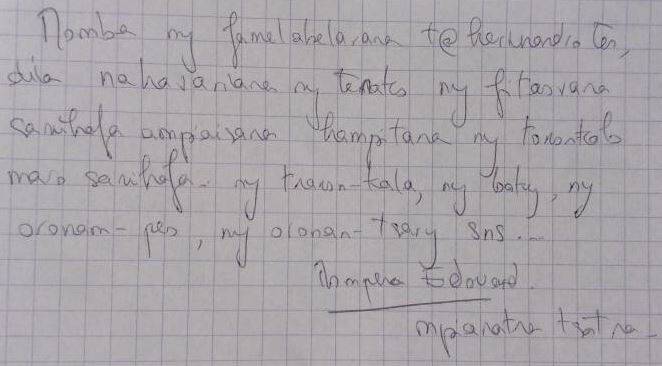 Nomba ny famelabelarana t@ herinandro teo,
dia nahasariaka ny tenako ny fitaovana
samihafa ampiasana hampitana ny
maro samihafa. ny trano-kala, ny boky, ny
oronam-peo, ny oronan-tsary sns...
Edouard.
mpianatra tsotra.